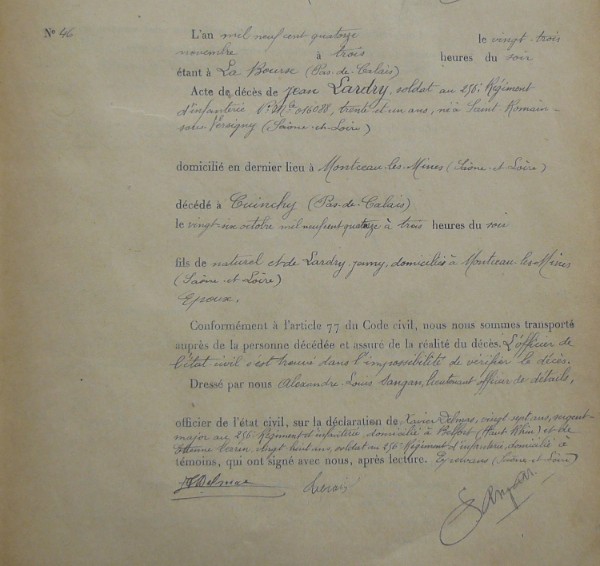 N° 46
L'an mil neuf cent quatorze le vingt trois
novembre à trois heures du soir
étant à La Bourse (Pas-de-Calais)
Acte de décès de Jean Lardry, soldat au 256e Régiment
d'infanterie, trente et un ans, né à Saint-Romain-
sous Versigny (Saône-et-Loire)
domicilié en dernier lieu à Montceau-les-Mines (Saône et Loire)
décédé à Cuinchy (Pas-de-Calais)
le vingt-six octobre mil neuf cent quatorze à trois heures du soir
fils de naturel et de Lardry, domiciliés à Montceau-les-Mines
(Saône et Loire)
Epoux,
Conformément à l'article 77 du Code civil, nous nous sommes transporté
auprès de la personne décédée et assuré de la réalité du décès. L'officier de
l'état civil s'est trouvé dans l'impossibilité de vérifier le décès.
Dressé par nous Alexandre Louis Sangan, lieutenant officier de détails,
officier de l'état civil, sur la déclaration de Xavier Delmas, vingt sept ans, sergent-
major au 256e Régiment d'infanterie, domicilié à Belfort (Haut Rhin) et de
vingt huit ans, soldat au 256e Régiment d'infanterie, domicilié à
témoins, qui ont signé avec nous, après lecture. (Saône et Loire)
Delmas